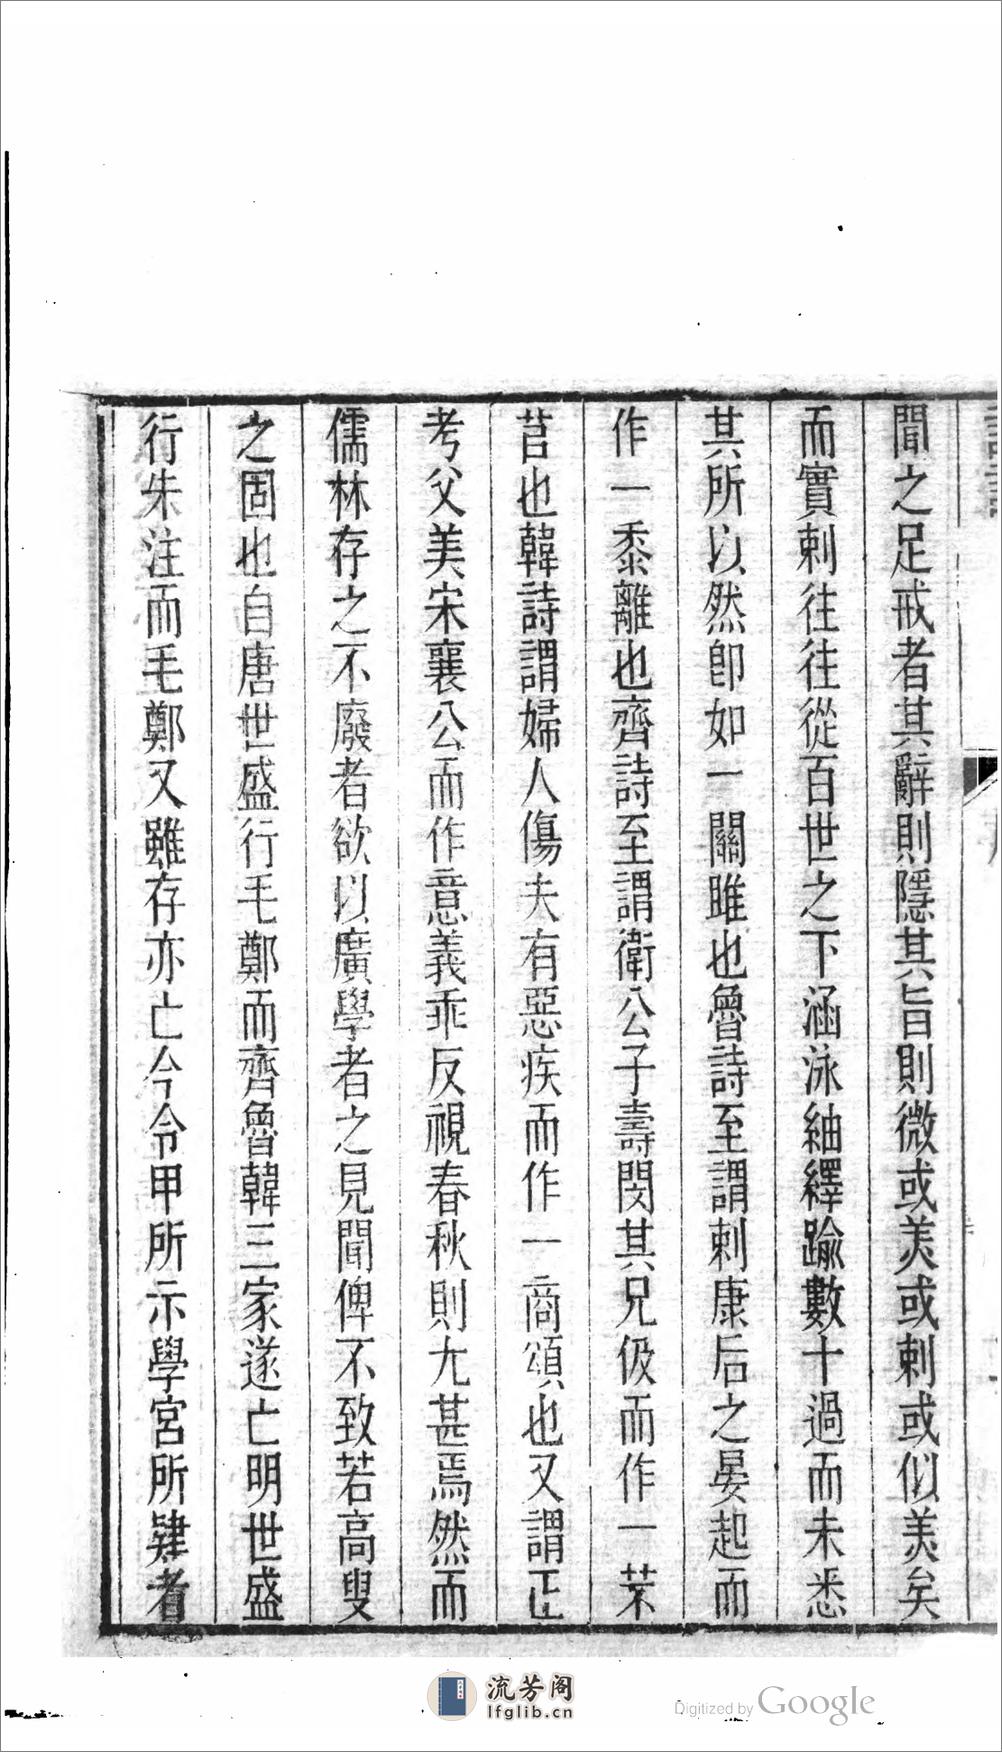 聞之足戒者其辭則隱其旨則微或美或刺或似美矣
而實刺往往從百世之下涵泳紬繹踰數十過而未悉
其所以然卽如一關雎也魯詩至謂刺康后之晏起而
作一黍離也齊詩至謂衛公子壽閔其兄伋而作一芣
苢也韓詩謂婦人傷夫有惡疾而作一商頌也又謂正
考父美宋襄公而作意義乖反視春秋則尢甚焉然而
儒林存之不廢者欲以廣學者之見聞俾不致若高叟
之固也自唐世盛行毛鄭而齊魯韓三家遂亡明世盛
行朱注而毛鄭又雖存亦亡今令甲所示學宮所肄者
流芳阁
lfglib.cn
Digitized by Google